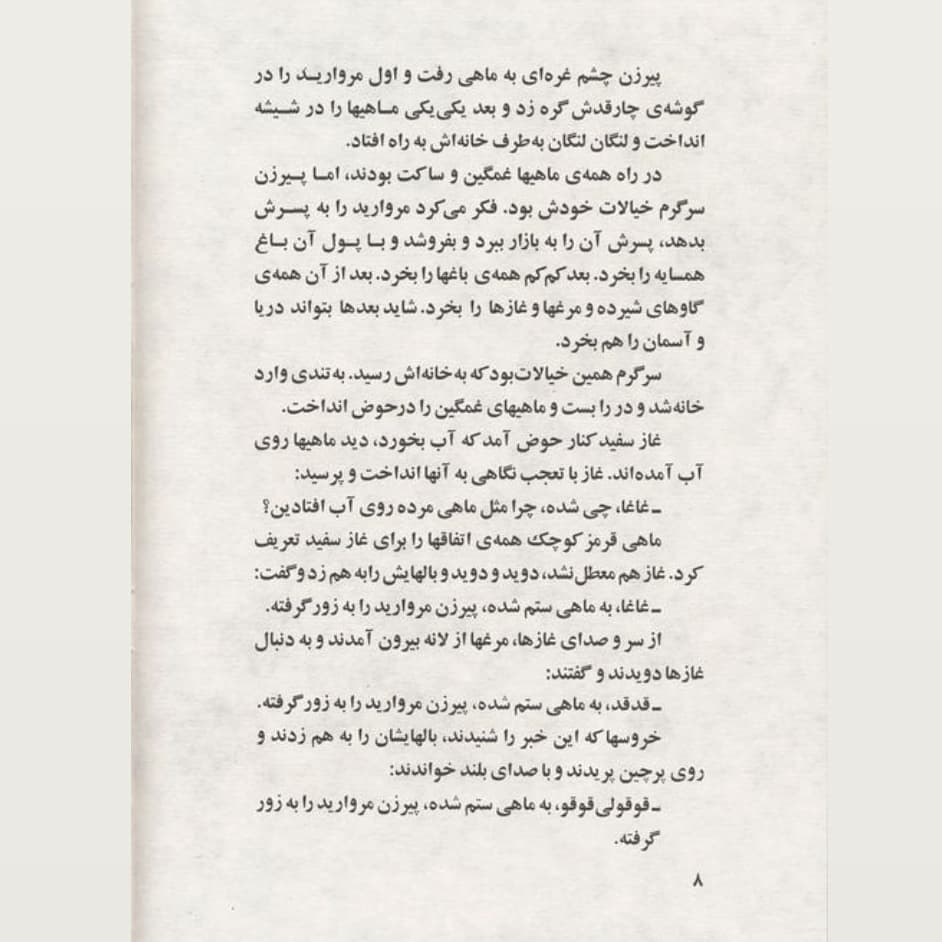 پیرزن چشم غره‌ای به ماهی رفت و اول مرواریـد را در
گوشه‌ی چارقدش گره زد و بعد یکی‌یکی مـاهیها را در شـیشه
انداخت و لنگان لنگان به‌طرف خانه‌اش به راه افتاد.
در راه همه‌ی ماهیها غمگین و ساکت بودند، امـا پـیرزن
سرگرم خیالات خودش بود. فکر می‌کرد مروارید را به پسـرش
بدهد، پسرش آن را به بازار ببرد و بفروشد و بـا پـول آن بـاغ
همسایه را بخرد. بعد کم‌کم همه‌ی باغها را بخرد. بعد از آن همه‌ی
گاوهای شیرده و مرغها و غازها را بخرد. شاید بعدها بتواند دریا
و آسمان را هم بخرد.
سرگرم همین خیالات بود که به خانه‌اش رسید. به تندی وارد
خانه شد و در را بست و ماهیهای غمگین را در حوض انداخت.
غاز سفید کنار حوض آمد که آب بخورد، دید ماهیها روی
آب آمده‌اند. غاز با تعجب نگاهی به آنها انداخت و پرسید:
ـ غاغا، چی شده، چرا مثل ماهی مرده روی آب افتادین؟
ماهی قرمز کوچک همه‌ی اتفاقها را برای غاز سفید تعریف
کرد. غاز هم معطل نشد، دوید و دوید و بالهایش را به هم زد و گفت:
ـ غاغا، به ماهی ستم شده، پیرزن مروارید را به زور گرفته.
از سر و صدای غازها، مرغها از لانه بیرون آمدند و به دنبال
غازها دویدند و گفتند:
ـ قدقد، به ماهی ستم شده، پیرزن مروارید را به زور گرفته.
خروسها که این خبر را شنیدند، بالهایشان را به هم زدند و
روی پرچین پریدند و با صدای بلند خواندند:
ـ قوقولی‌قوقو، به ماهی ستم شده، پیرزن مروارید را به زور
گرفته.
۸